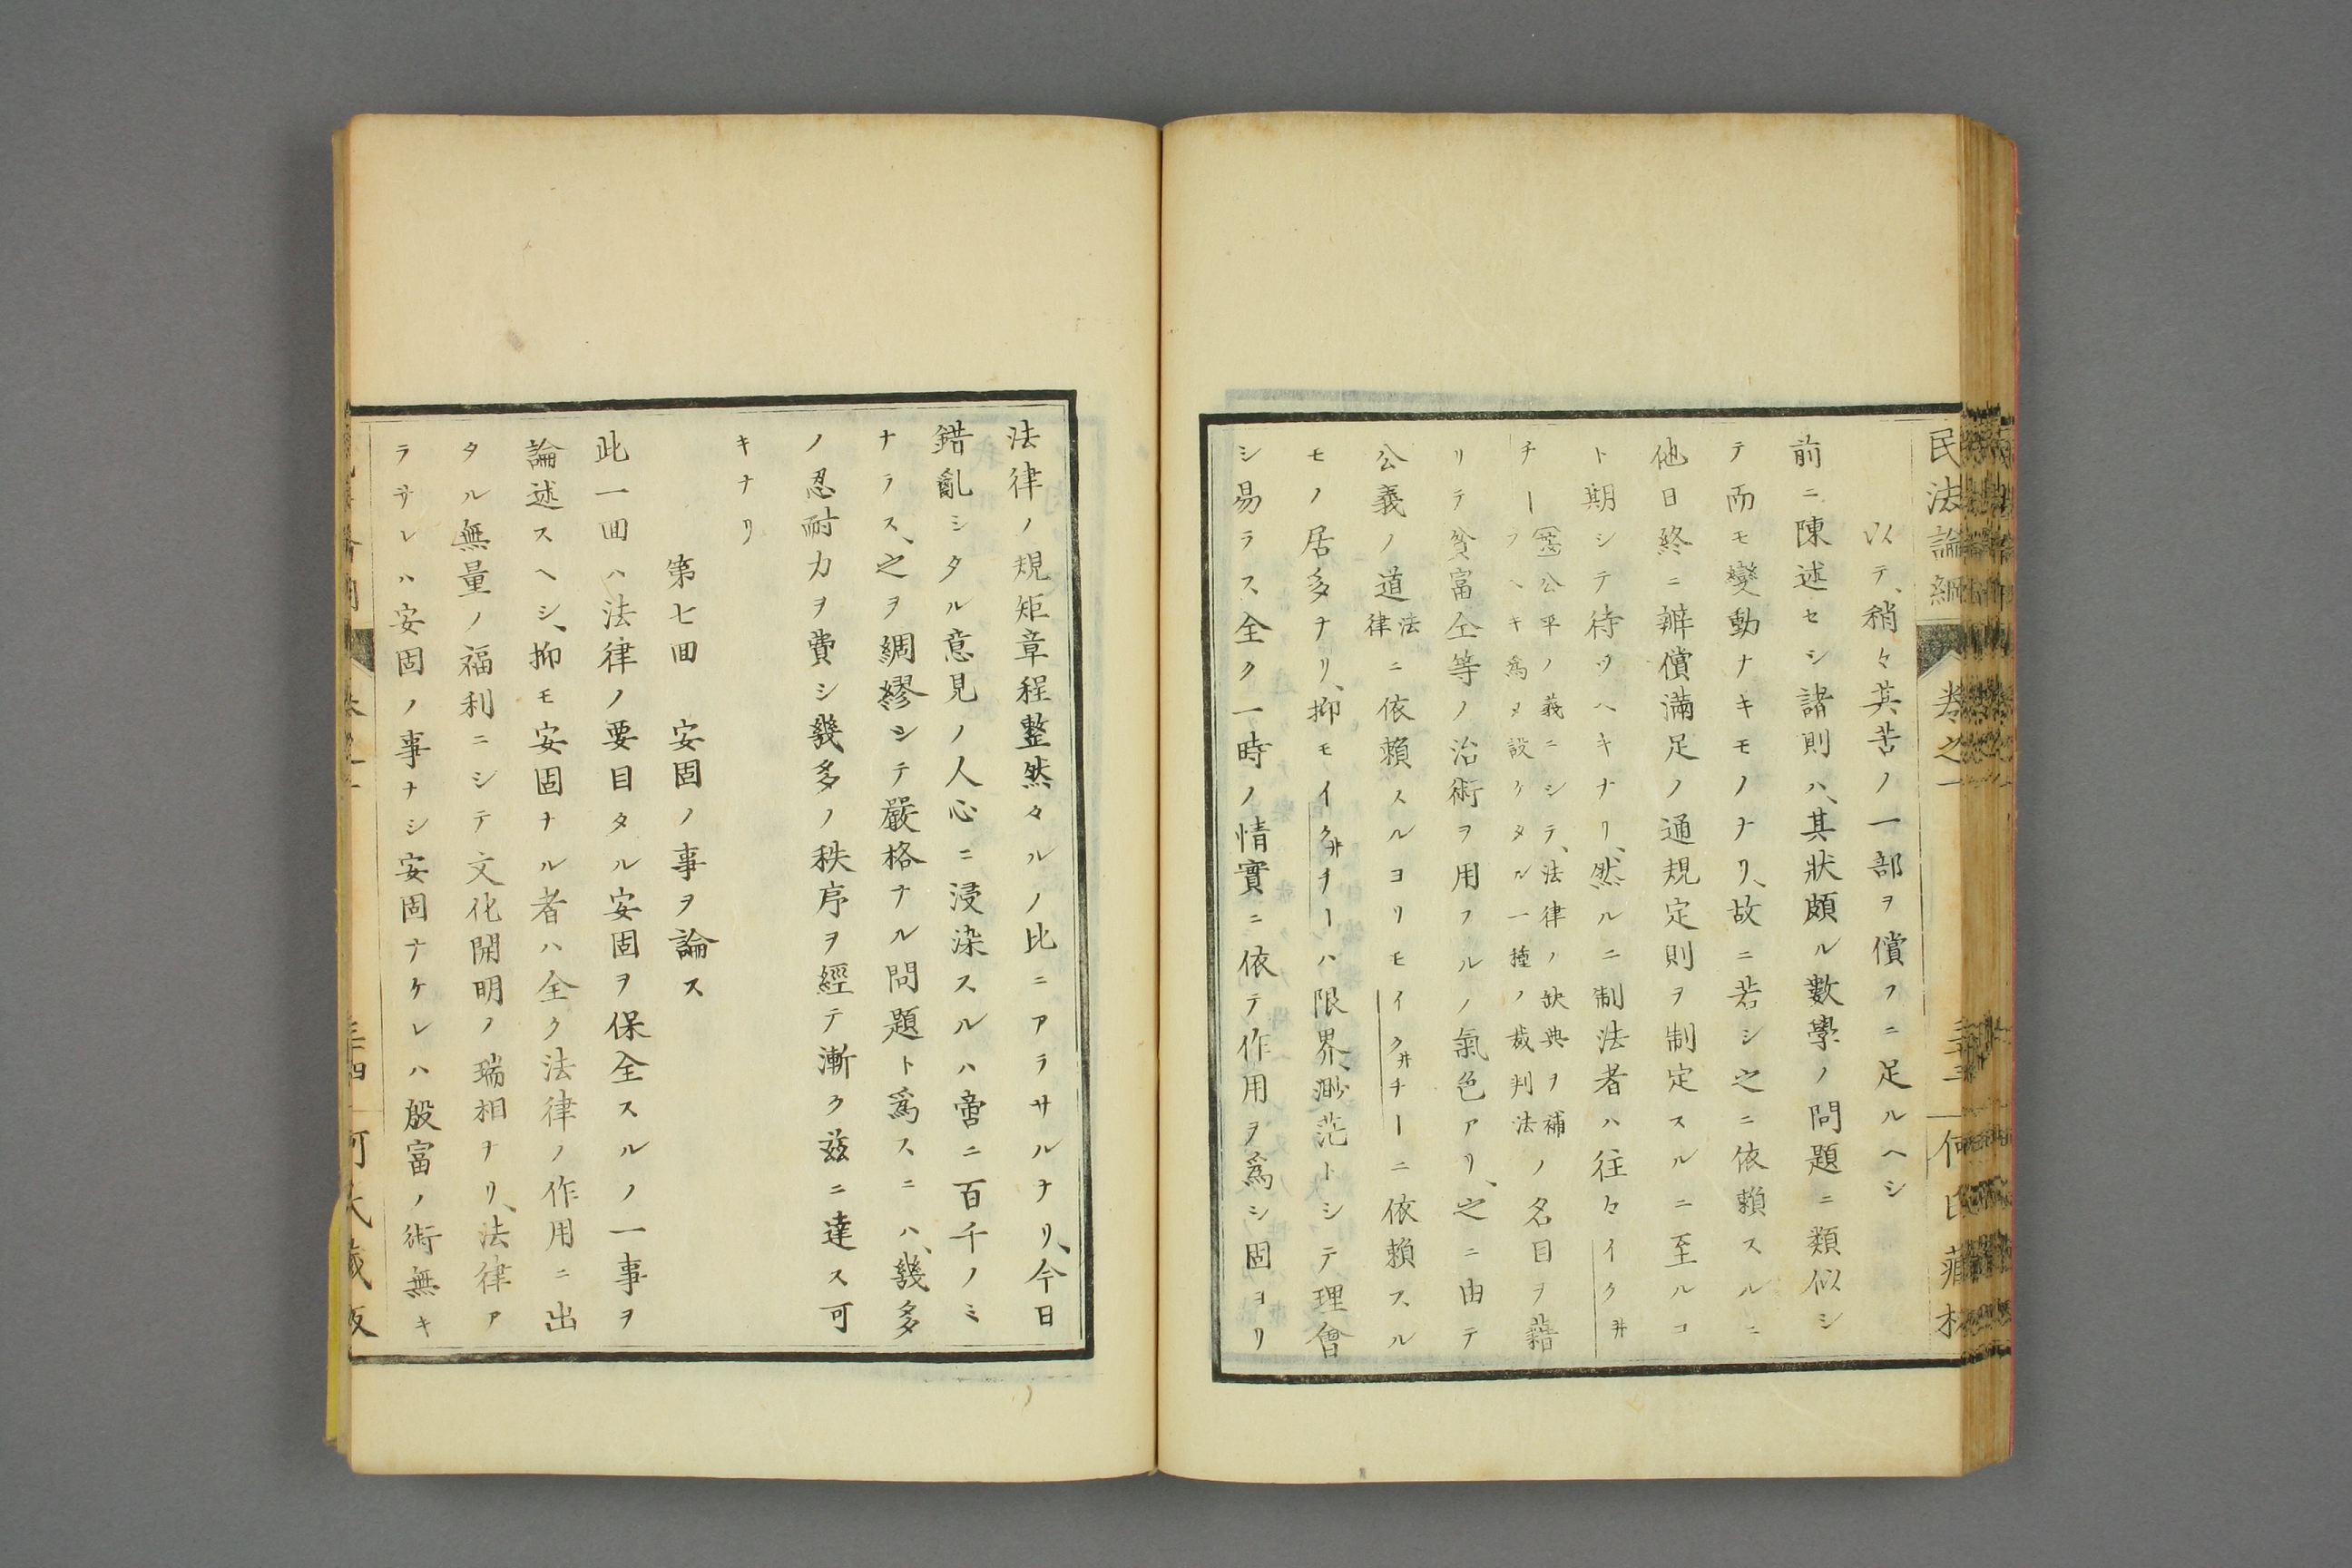 民法論綱
卷之一
三十三
何氏藏板
以テ、稍々其苦ノ一部ヲ償フニ足ルヘシ
前ニ陳述セシ諸則ハ、其狀頗ル數學ノ問題ニ類似シ
テ而モ變動ナキモノナリ、故ニ若シ之ニ依頼スルニ
他日終ニ辨償滿足ノ通規定則ヲ制定スルニ至ルコ
ト期シテ待ツヘキナリ、然ルニ制法者ハ往々イクヰ
チー
公平ノ義ニシテ、法律ノ缺典ヲ補
フヘキ爲メ設ケタル一種ノ裁判法
ノ名目ヲ藉
リテ貧富仝等ノ治術ヲ用フルノ氣色アリ、之ニ由テ
公義ノ道
法
律
ニ依頼スルヨリモイクヰチーニ依頼スル
モノ居多ナリ、抑モイクヰチーハ限界渺茫トシテ理會
シ易ラス全ク一時ノ情實ニ依テ作用ヲ爲シ固ヨリ
法律ノ規矩章程整然タルノ比ニアラサルナリ、今日
錯亂シタル意見ノ人心ニ浸染スルハ啻ニ百千ノミ
ナラス、之ヲ綢繆シテ嚴格ナル問題ト爲スニハ、幾多
ノ忍耐力ヲ費シ幾多ノ秩序ヲ經テ漸ク茲ニ達ス可
キナリ
第七囬 安固ノ事ヲ論ス
此一囬ハ法律ノ要目タル安固ヲ保全スルノ一事ヲ
論述スヘシ、抑モ安固ナル者ハ全ク法律ノ作用ニ出
タル無量ノ福利ニシテ文化開明ノ瑞相ナリ、法律ア
ラサレハ安固ノ事ナシ安固ナケレハ殷富ノ術無キ